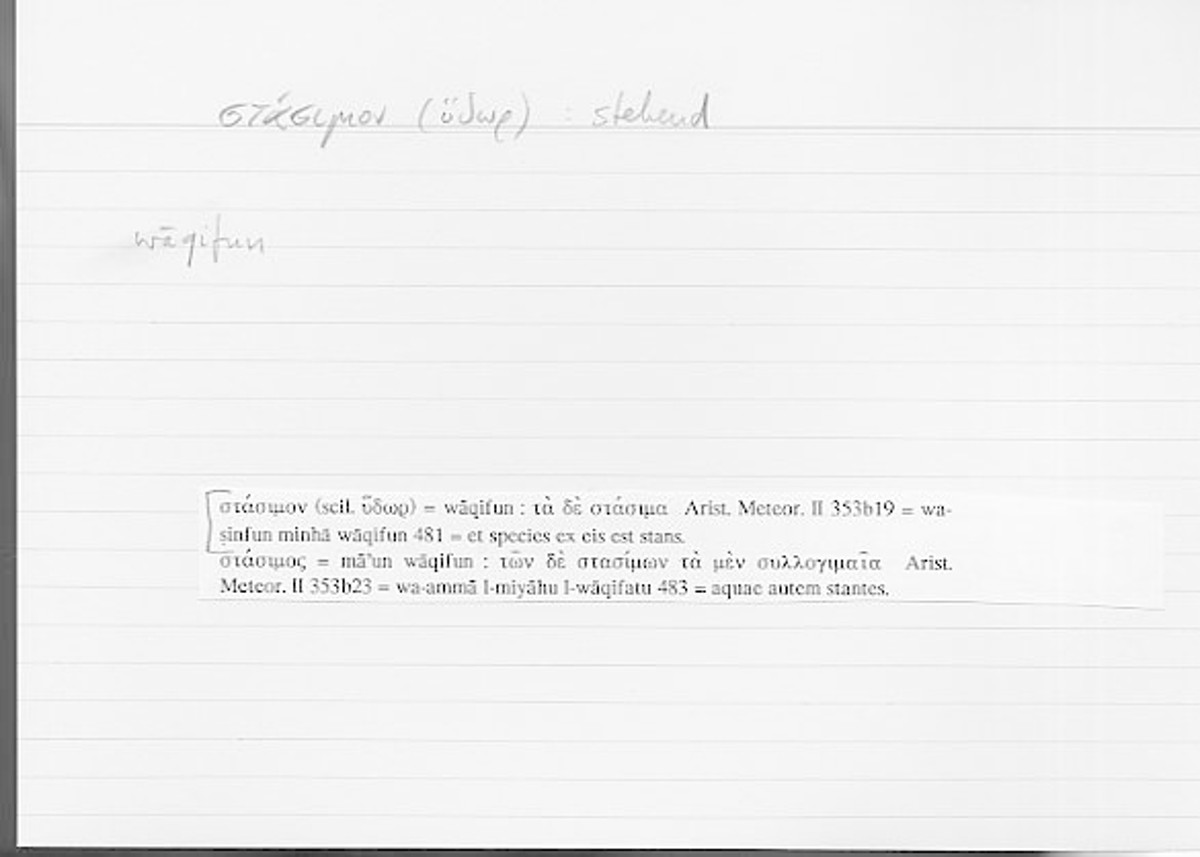 στάσιμον (ὕδωρ) : stehend
wāqifun
στάσιμον (scil. ὕδωρ) = wāqifun : τὰ δὲ στάσιμα Arist. Meteor. II 353b19 = wa-
ṣinfun minhā wāqifun 481 = et species ex eis est stans.
στάσιμος = māʾun wāqifun : τῶν δὲ στασίμων τὰ μὲν συλλογιμαῖα Arist.
Meteor. II 353b23 = wa-ammā l-miyāhu l-wāqifatu 483 = aquae autem stantes.